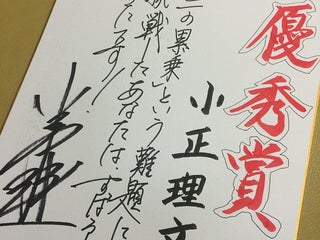 優秀賞
小正理文
二の累乗という難題に
挑戦したあなたは、すばら
です!